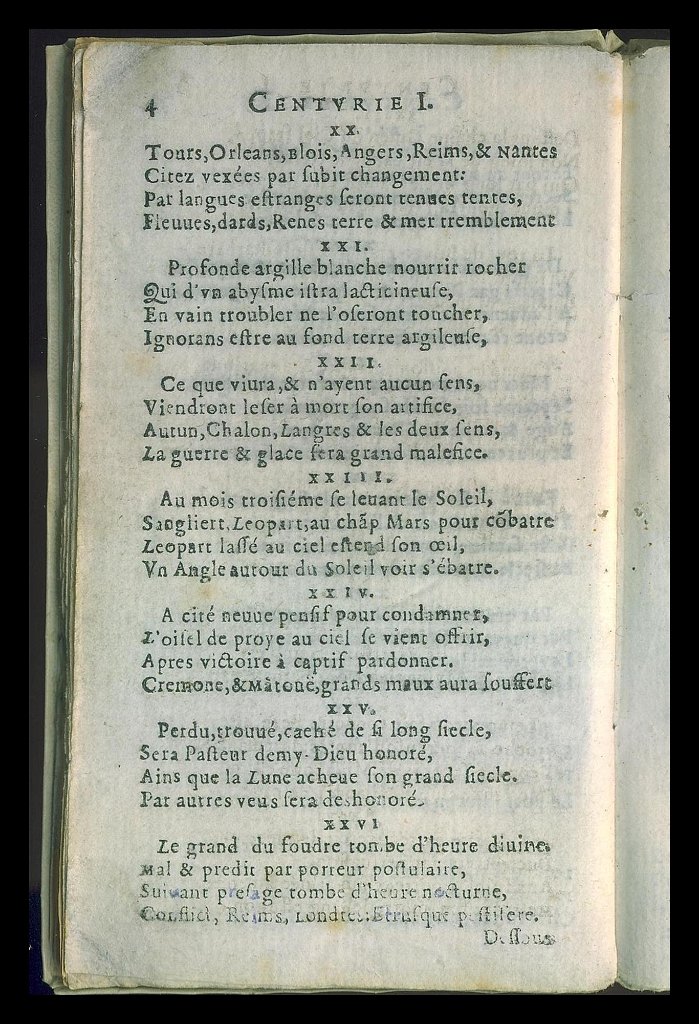 4 CENTVRIE I.
XX.
Tours,Orleans,Blois,Angers,Reims,& Nantes
Citez vexées par ſubit changement:
Par langues eſtranges ſeront tenues tentes,
Fleuues,dards,Renes terre & mer tremblement
XXI.
Profonde argille blanche nourrir rocher
Qui d'vn abyſme iſtra lacticineuſe,
En vain troubler ne l'oſeront toucher,
Ignorans eſtre au fond terre argileuſe,
XXII.
Ce que viura,& n'ayent aucun ſens,
Viendront leſer à mort ſon artifice,
Autun,Chalon,Langres & les deux ſens,
La guerre & glace ſera grand malefice.
XXIII.
Au mois troiſiéme ſe leuant le Soleil,
Sangliert,Leopart,au chãp Mars pour cõbatre
Leopart laſſé au ciel eſtend ſon œil,
Vn Angle autour du Soleil voir s'ébatre.
XXIV.
A cité neuue penſif pour condamner,
L'oiſel de proye au ciel ſe vient offrir,
Apres victoire à captif pardonner.
Cremone,&Mãtouë,grands maux aura ſouffert
XXV.
Perdu,trouué,caché de ſi long ſiecle,
Sera Paſteur demy-Dieu honoré,
Ains que la Lune acheue ſon grand ſiecle.
Par autres veus ſera deshonoré.
XXVI
Le grand du foudre tombe d'heure diuine.
Mal & predit par porteur poſtulaire,
Suivant preſage tombe d'heure nocturne,
Conflict, Reims, Londres:Etruſque peſtifere.
Deſſous